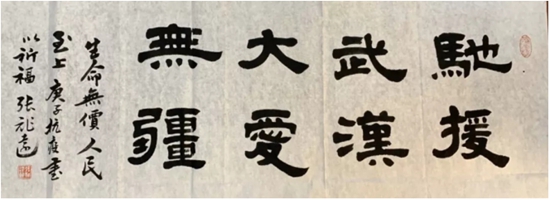 馳援
武漢
大愛
無疆
生命無價人民
至上庚子抗疫書
以祈福张